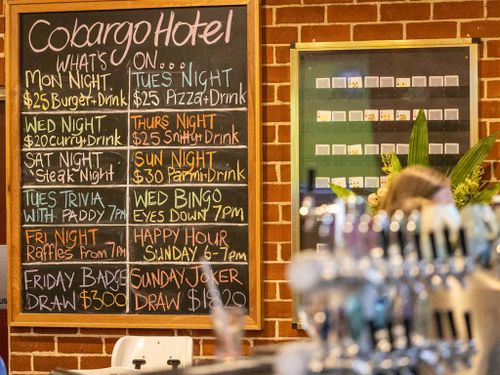 Cobargo Hotel
WHAT'S ON...
MON NIGHT
$25 BURGER+DRINK
TUES NIGHT
$25 PIZZA+DRINK
WED NIGHT
$20 CURRY+DRINK
THURS NIGHT
$25 SNITTY+DRINK
SAT NIGHT
"STEAK NIGHT"
SUN NIGHT
$30 PARMI+DRINK
TUES TRIVIA
WITH PADDY 7PM
WED BINGO
EYES DOWN 7PM
FRI NIGHT
RAFFLES FROM 7PM
HAPPY HOUR
SUNDAY 6-7PM
FRIDAY BADGE
DRAW $300
SUNDAY JOKER
DRAW $1820